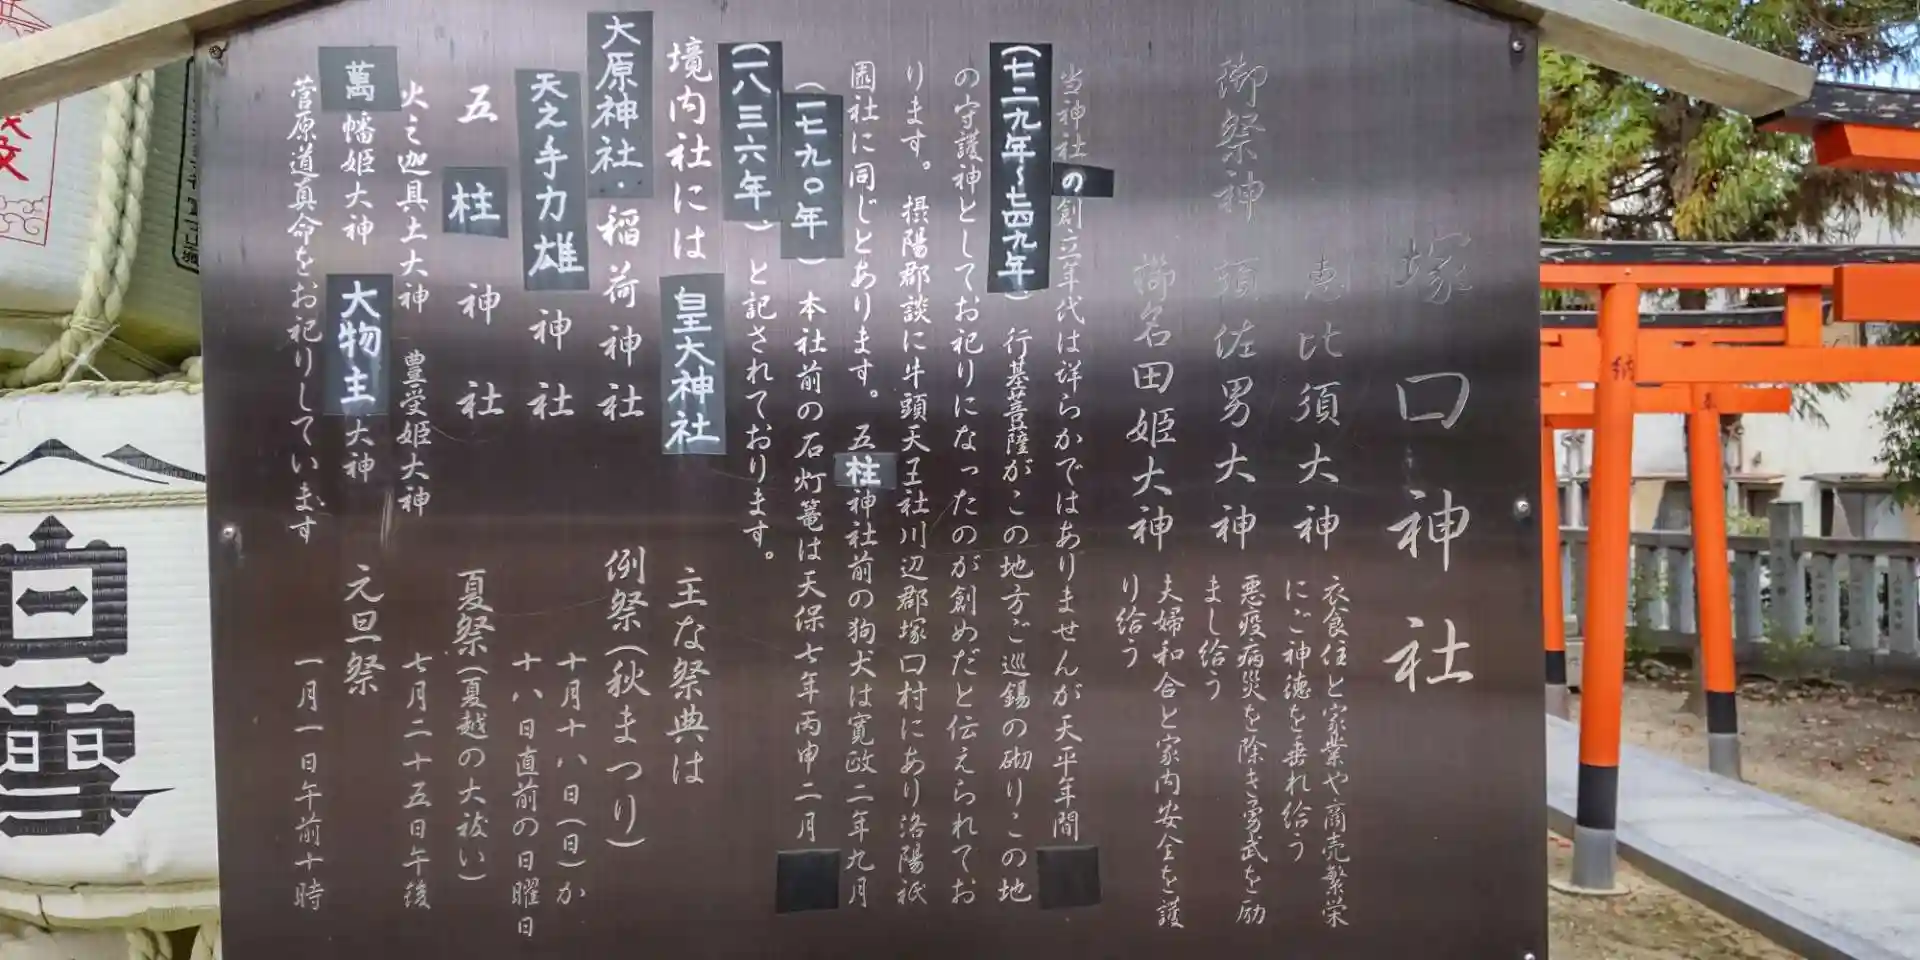 塚口神社
御祭神
恵比須大神
衣食住と家業や商売繁栄
にご神徳を垂れ給う
須佐男大神
悪疫病災を除き勇武を励
まし給う
櫛名田姫大神
夫婦和合と家内安全を護
り給う
当神社の創立年代は詳らかではありませんが天平年間
(七二九年～七四九年)行基菩薩がこの地方ご巡錫の砌りこの地
の守護神としてお祀りになったのが創めだと伝えられてお
ります。摂陽郡談に牛頭天王社川辺郡塚口村にあり洛陽祇
園社に同じとあります。五柱神社前の狗犬は寛政二年九月
(一七九〇年)本社前の石灯篭は天保七年丙申二月
(一八三六年)と記されております。
境内社には
皇大神社
大原神社・稲荷神社
天之手力雄神社
五柱神社
火之迦具土大神 豊受姫大神
萬幡姫大神 大物主大神
菅原道真命をお祀りしています
主な祭典は
例祭(秋まつり)
十月十八日(日)か
十八日直前の日曜日
夏祭(夏越の大祓い)
七月二十五日午後
元旦祭
一月一日午前十時
白雪
納